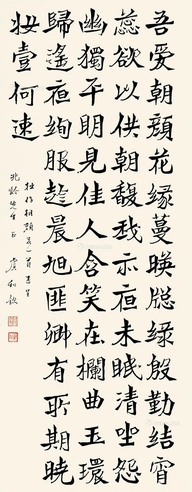 吾愛朝顔花緣蔓暎牕綠殷勤結宵
蕊欲以供朝馥我亦夜未眠清坐怨
幽獨平明見佳人含笑在欄曲玉環
歸遙夜絢服趂晨旭匪卿有所期曉
妝壹何速
拙作朝顔一首書呈
先生正 虞和欽